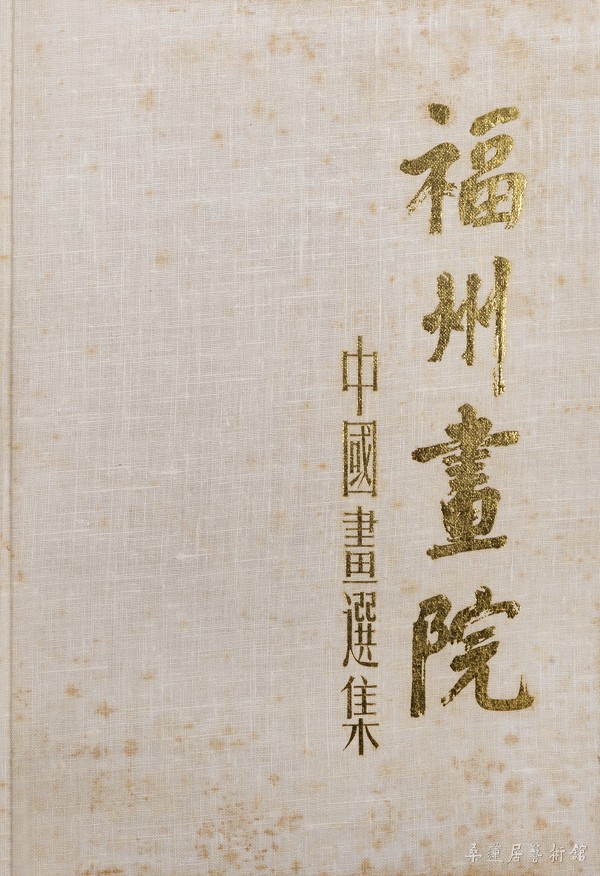 福州畫院
中國畫選集
桑蓮居藝術館